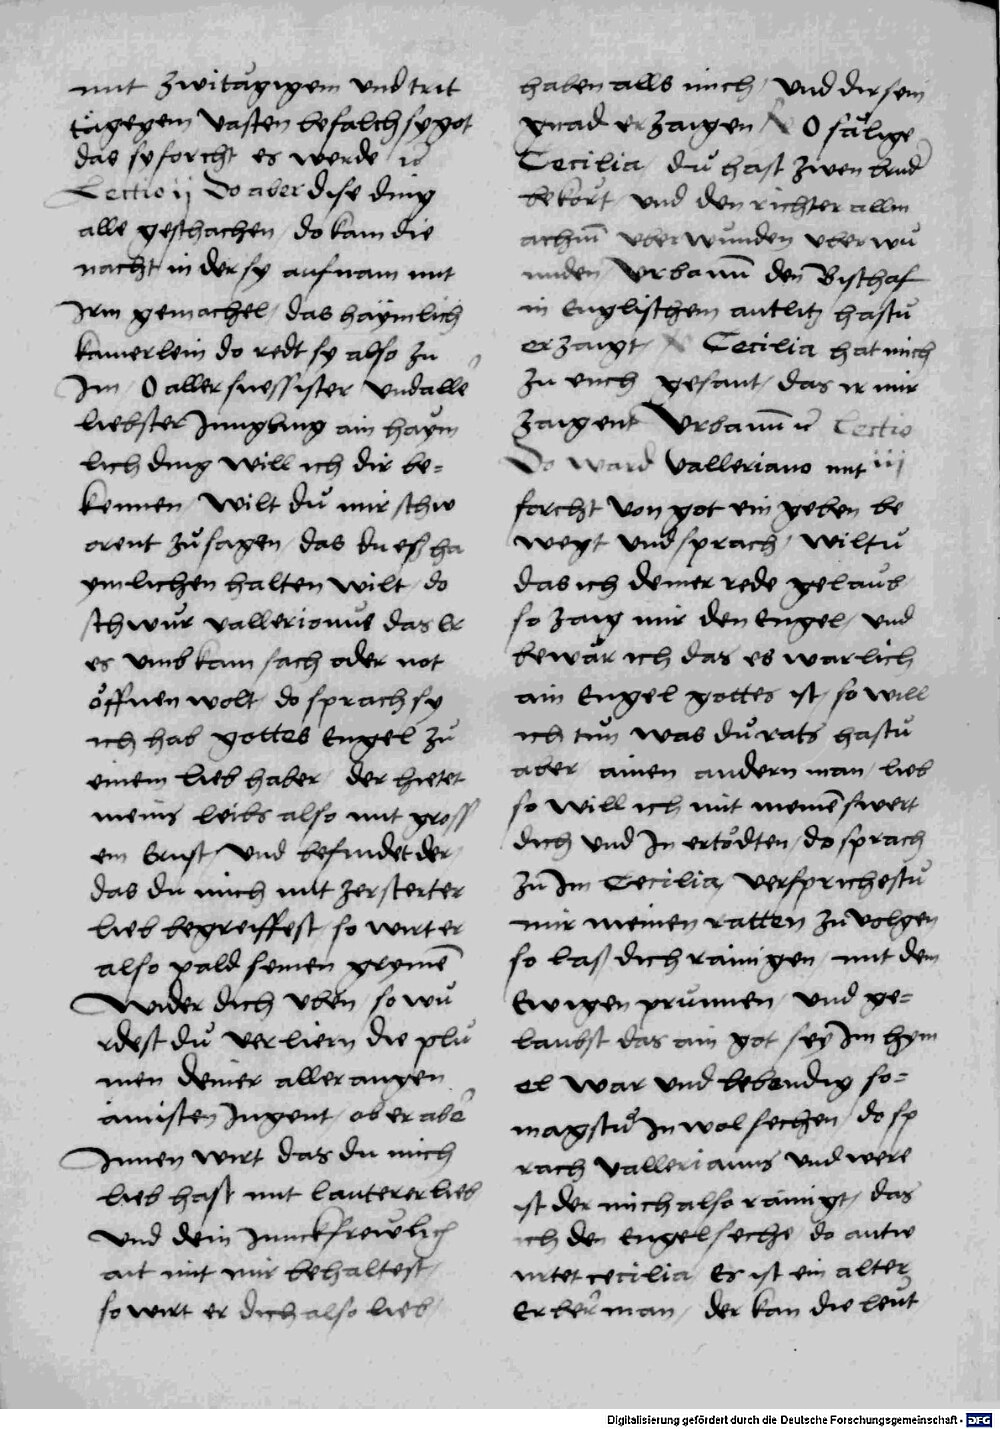 mit zwitägigem und trit
tägegem vasten befalch sy got
das sy forcht es werde ɾc̄
Lectio ij Do aber dise ding
alle geschachen / do kam die
nacht in der sy aufnam mit
Irm gemachel / das haÿmlich
kamerlein do redt sy also zu
Im / O aller suessister und alle᷑
liebster Jungling ain haym
lich ding will ich dir be-
kennen / wilt dů mir schw
orent zů sagen / das du eß ha
ymlichen halten wilt / do
schwůr vallerionus das Er
es umb kam sach oder not
öffnen wolt / do sprach sy
ich hab gottes Engel zů
einem lieb haber / der hietet
meins leibs also mit gross
em Ernst / und befindet der /
das du mich mit zersterter
lieb begreiffest / so wirt er
also pald seinen grymē
Wider dich vben / so wů
rdest dů verliern die plů
men deiner aller angen
ämisten Jugent / ob er abe᷑
Innen wirt das du mich
lieb hast mit lauterer lieb
und dein Junckfrewlich
ait mit mir behaltest /
so wirt er dich also lieb /
haben alls mich / und dir sein
gnad er zaigen O sälige
Cecilia / dů hast zwen brud᷑
bekört / und den richter allm
achiū uberwunden vberwů
nnden / Vrbanū den Bischaf
in Englischem antlitz hastů
erzaigt / Cecilia hat mich
zu euch gesant / das ir mir
zaigent Vrbanū ɾc̄ Lectio
Do ward Valleriano mit iij
forcht von got ein geben be
wegt und sprach / wiltů
das ich deiner rede gelaub /
so zaig mir den Engel / und
bewär ich das es warlich
ain Engel gottes ist / so will
ich tůn was dů rats hastů
aber ainen andern man / lieb
so will ich mit meinē swert
dich und In ertödten / do sprach
zů Im Cecilia / versprichestů
mir meinen ratten zů volgen
so laß dich rainigen / mit dem
Ewigen prunnen / und ge-
laubst das ain got seÿ Im hym
el war und lebendig so-
magstů In wol sechen / do sp
rach Vallerianus und were
ist der mich also rainigt / das
ich den Engel seche / do antw
urtet cecilia Es ist ein alter
Erber man / der kan die leut
Digitalisierung gefördert durch die Deutsche Forschungsgemeinschaft - DFG